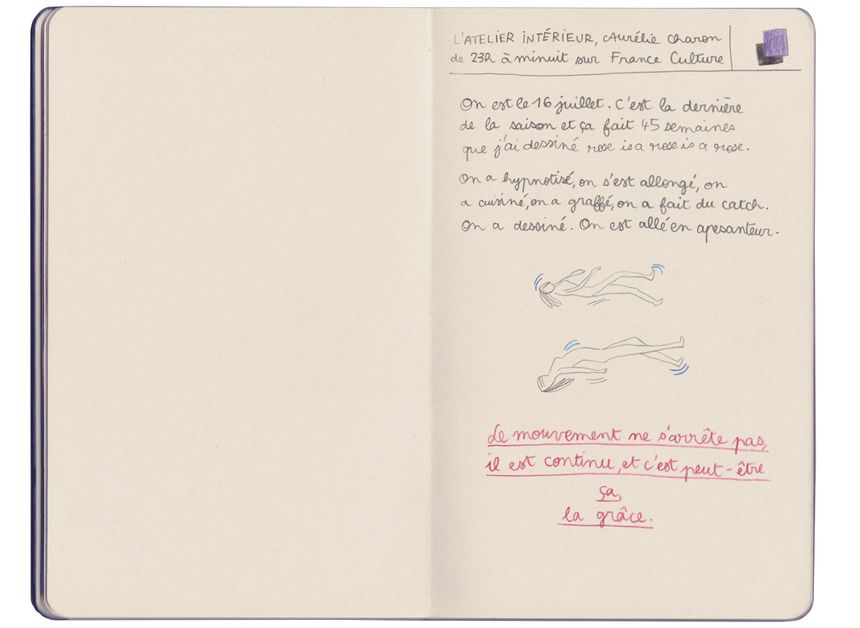 L'ATELIER INTÉRIEUR, Aurélie Charon
de 23h à minuit sur France Culture
On est le 16 juillet. C'est la dernière
de la saison et ça fait 45 semaines
que j'ai dessiné rose is a rose is a rose.
On a hypnotisé, on s'est allongé, on
a cuisiné, on a graffé, on a fait du catch.
On a dessiné. On est allé en apesanteur.
Le mouvement ne s'arrête pas,
il est continu, et c'est peut-être
ça,
la grâce.